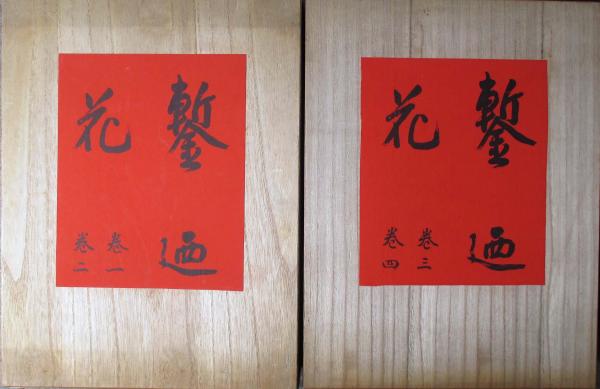 鏨廼
花
巻一
巻二
鏨廼
花
巻三
巻四